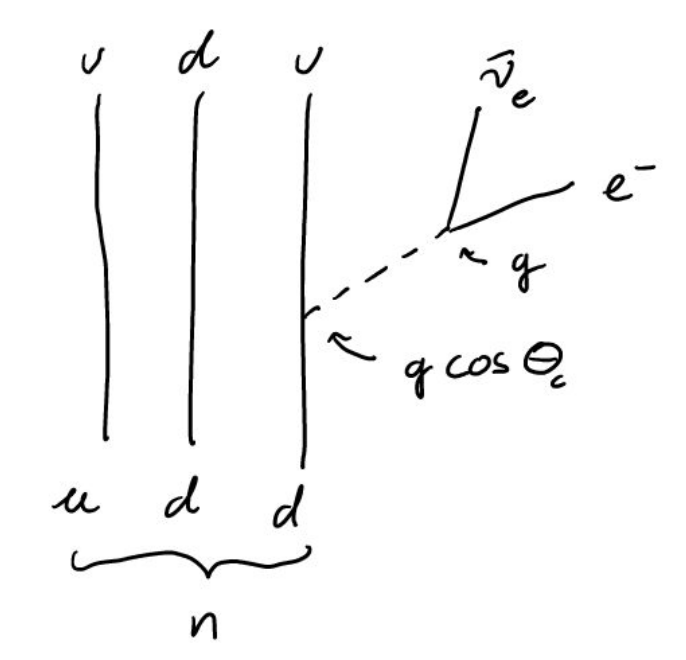 u d u
ν̄ₑ
e⁻
g
g cos θ_c
u d d
n